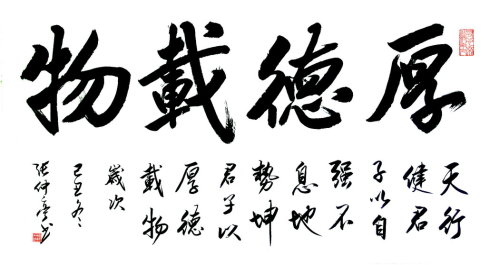 厚德載物
天行
健君
子以自
强不
息地
勢坤
君子以
厚德
載物
歲次
己丑冬
張仲亭书